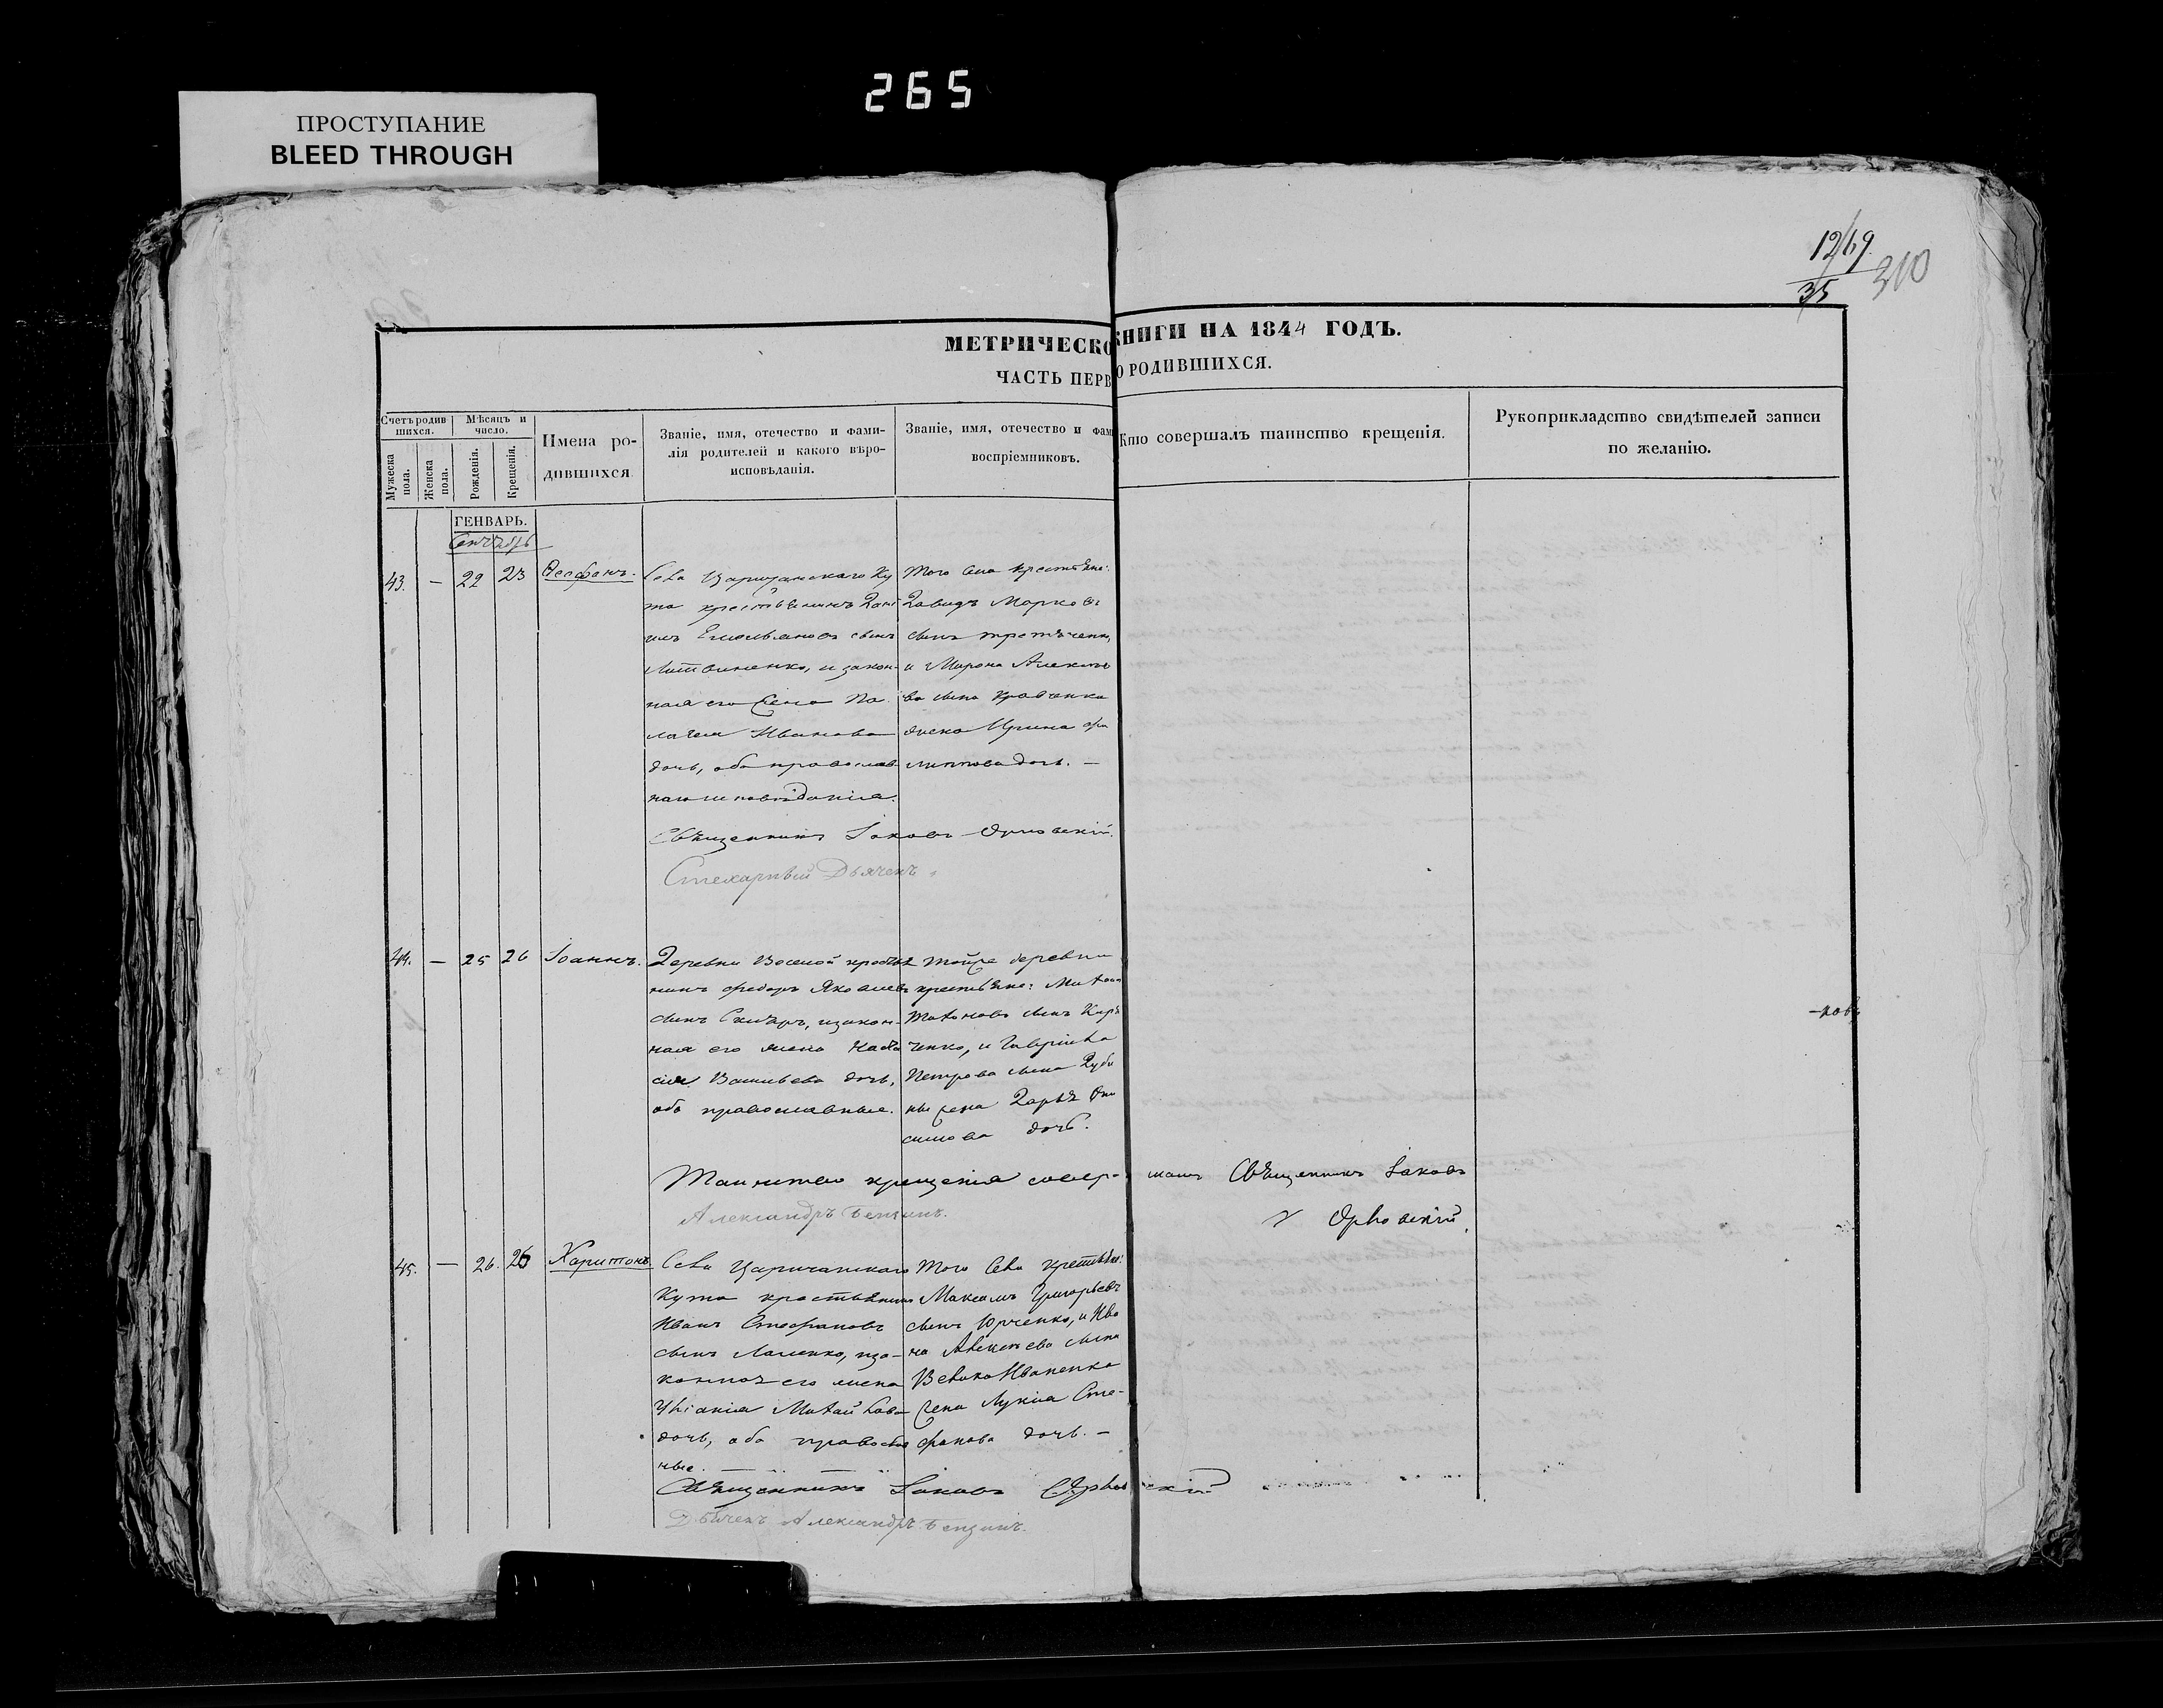 265
ПРОСТУПАНИЕ
BLEED THROUGH
1269
35
310
МЕТРИЧЕСКО КНИГИ НА 1844 ГОДЪ.
ЧАСТЬ ПЕРВ О РОДИВШИХСЯ.
Счетъ родившихся.
Мѣсяцъ и число.
Мужеска пола.
Женска пола.
Рожденія.
Крещенія.
Имена родившихся.
Званіе, имя, отечество и фамилія родителей и какого вѣроисповѣданія.
Званіе, имя, отечество и фам
воспріемниковъ.
Кто совершалъ таинство крещенія.
Рукоприкладство свидѣтелей записи по желанію.
ГЕНВАРЬ.
Сентябрь
43. — 22 23 Ѳеофанъ.
Села Царичанскаго Ку
та крестьянинъ Дані
илъ Емельяновъ сынъ
Литвиненко, и закон-
ная его жена Пе
лагея Иванова
дочь, оба православ
наго исповѣданія.
Того села крестьяне:
Давидъ Марковъ
сынъ
и Мирона Алексѣе
ва сына Кравченка
жена Ирина Фи
липпова дочь. —
Священникъ Іаковъ Орловскій.
Дьячекъ
44. — 25 26 Іоаннъ.
Деревни крестья
нинъ Федоръ Яковлевъ
сынъ и закон-
ная его жена Наста
сія Васильева дочь,
оба православные.
Тойже деревни
крестьяне:
сынъ Кири
ченко, и Гавріила
Петрова сына Дуби
ны жена Дарья Они
симова дочь.
Таинство крещенія совер-
шалъ Священникъ Іаковъ
Орловскій.
Александръ
45. — 26. 26 Харитонъ.
Села Царичанскаго
Кута крестьянинъ
Иванъ Стефановъ
сынъ и за-
конная его жена
Уліанія
дочь, оба православ
ные.
Того Села крестьяне:
Максимъ Григорьевъ
сынъ Юрченко, и Ива
на Алексѣева сына
Великоиваненка
жена Лукія Сте-
фанова дочь. —
Священникъ Іаковъ Орловскій
Дьячекъ Александръ